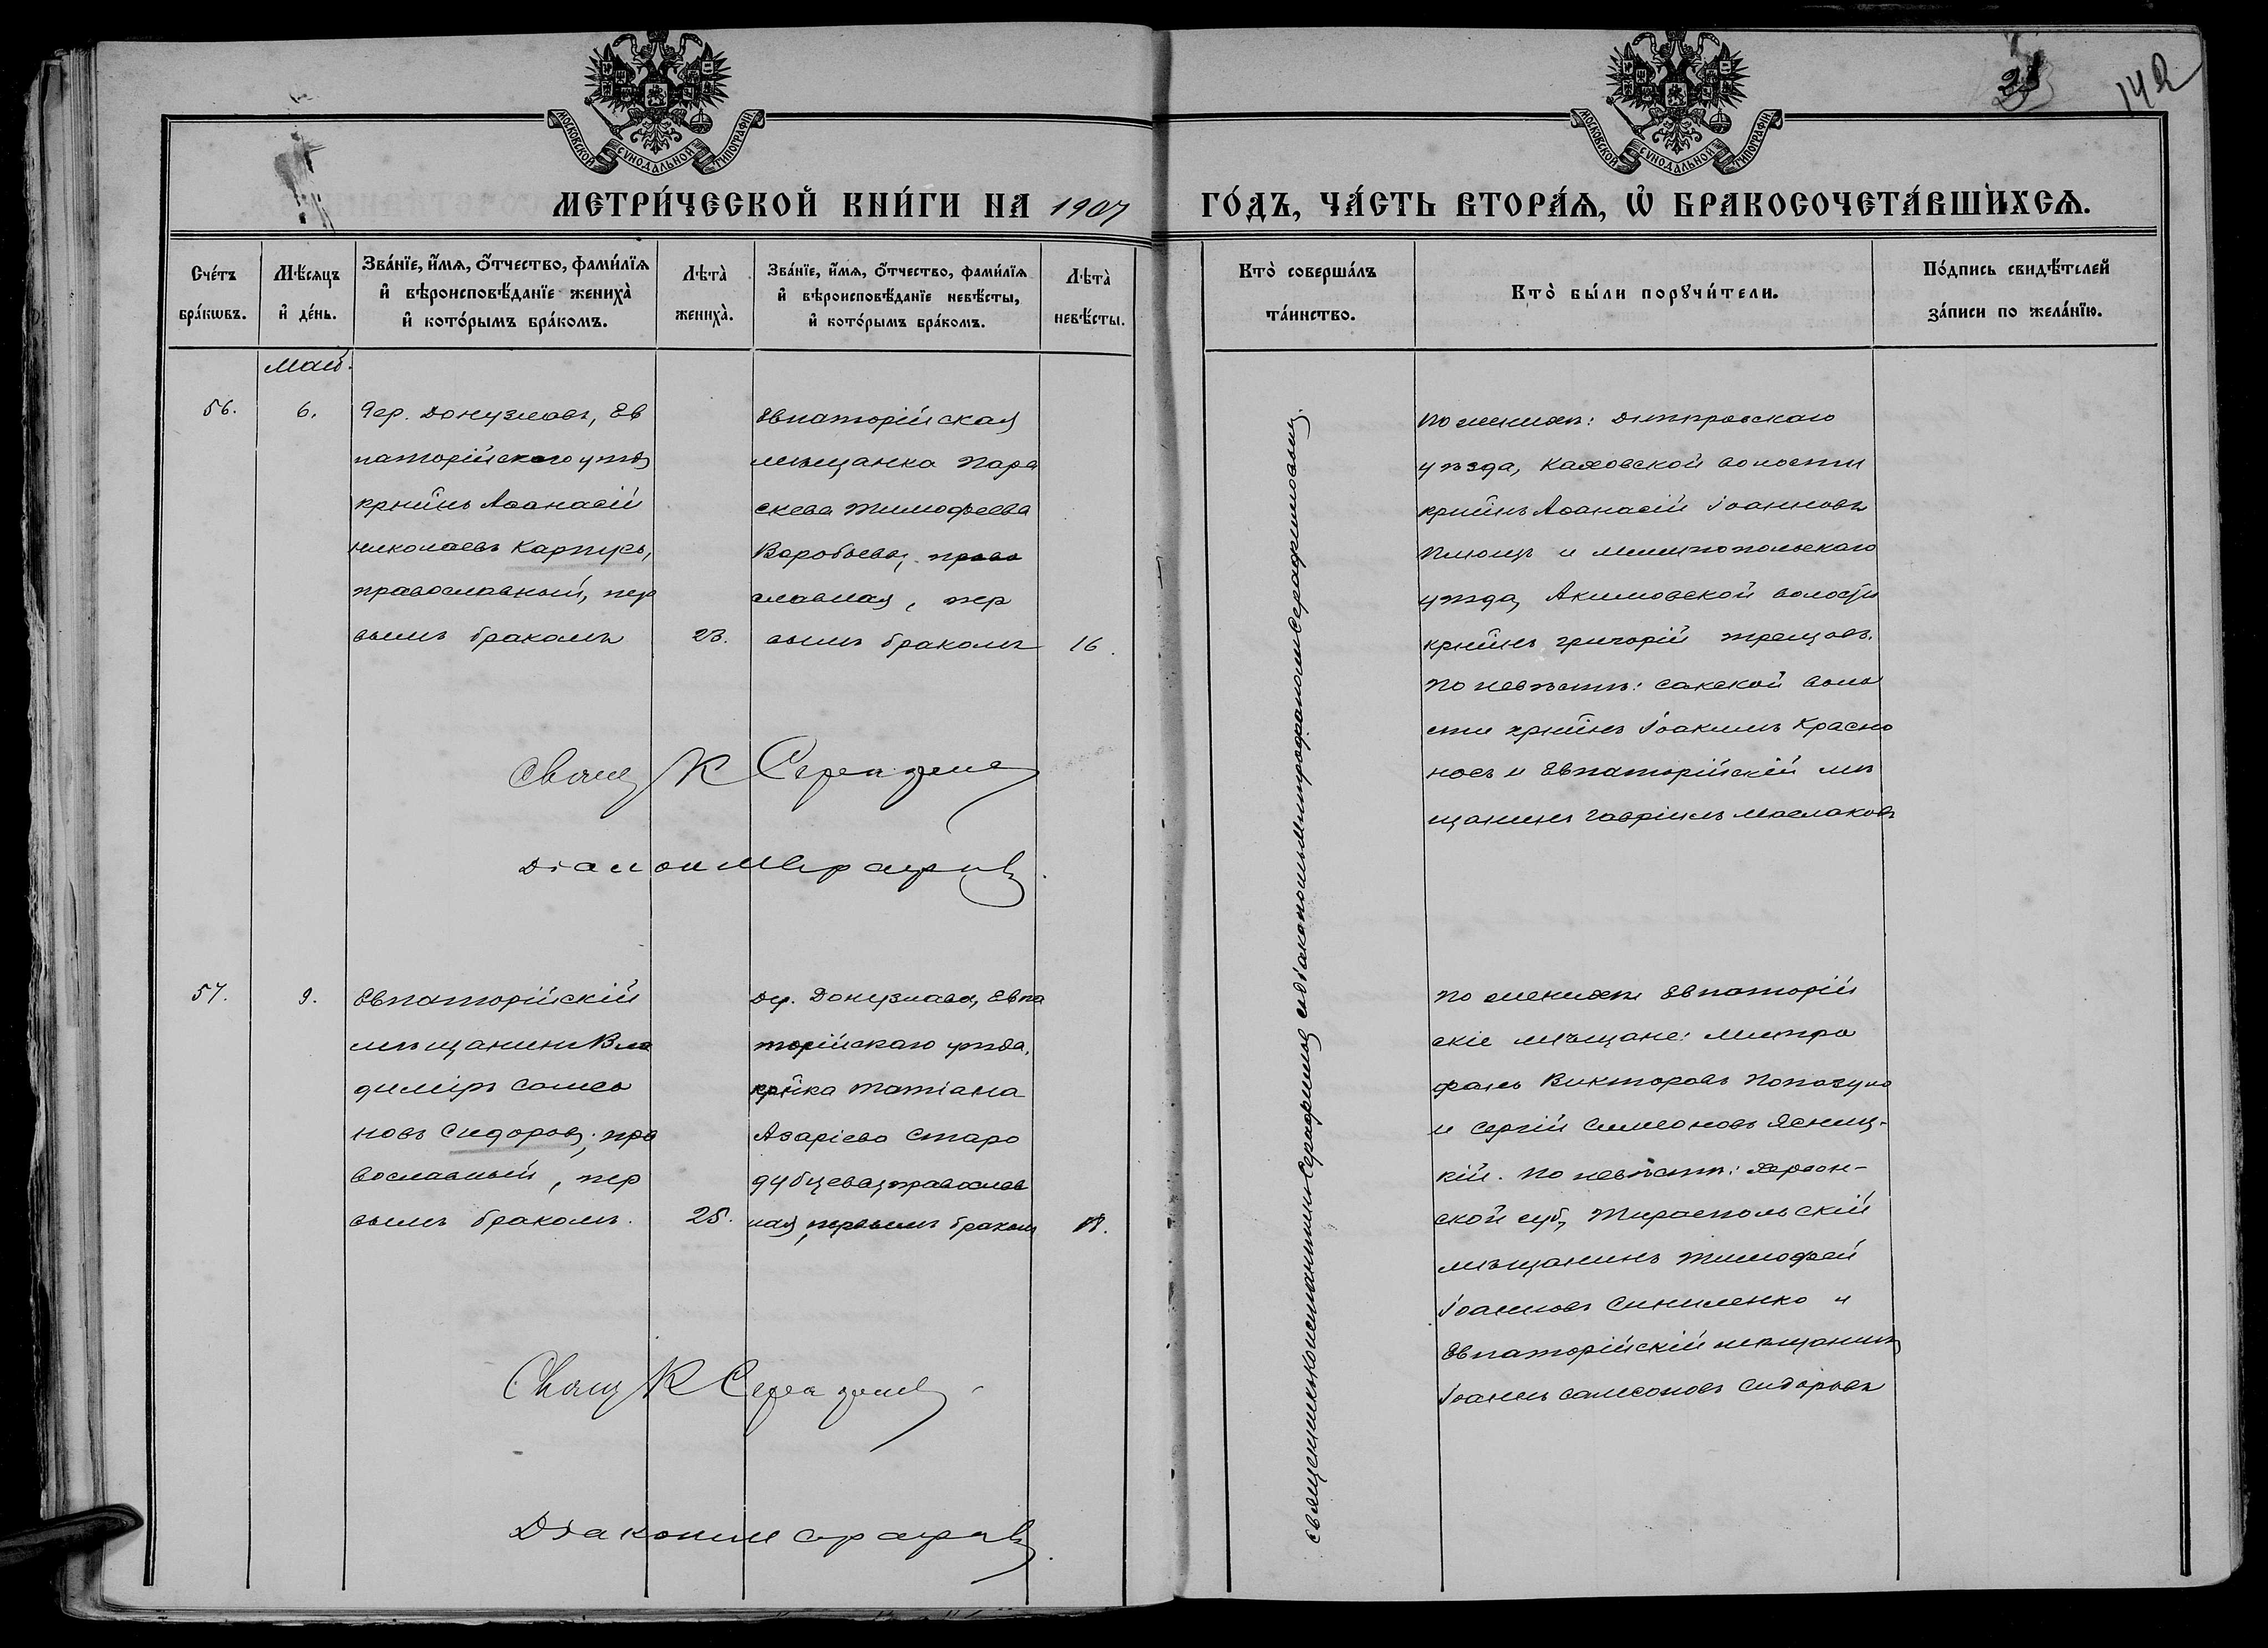 МОСКОВСКОЙ СѴНОДАЛЬНОЙ ТИПОГРАФІИ
МОСКОВСКОЙ СѴНОДАЛЬНОЙ ТИПОГРАФІИ
142
МЕТРИ́ЧЕСКОЙ КНИ́ГИ НА 1907
ГО́ДЪ, ЧА́СТЬ ВТОРА́Ѧ, Ѡ҆ БРАКОСОЧЕТА́ВШИХСѦ.
Сче́тъ бра́кѡвъ.
Мѣ́сяцъ и҆ де́нь.
Зва́нїе, и҆́мѧ, ѻ҆́тчество, фами́лїѧ
и҆ вѣроисповѣ́данїе жениха̀
и҆ кото́рымъ бра́комъ.
Лѣта̀ жениха̀.
Зва́нїе, и҆́мѧ, ѻ҆́тчество, фами́лїѧ
и҆ вѣроисповѣ́данїе невѣ́сты,
и҆ кото́рымъ бра́комъ.
Лѣта̀ невѣ́сты.
Кто̀ соверша́лъ та́инство.
Кто̀ бы́ли порꙋчи́тели.
По́дпись свидѣ́телей
за́писи по жела́нїю.
Май.
56.
6.
Дер. Донузлавъ, Ев
паторійскаго уѣзд
кр‍нинъ Аѳанасій
Николаевъ Карпусь,
православный, пер
вымъ бракомъ
23.
Евпаторійская
мѣщанка Пара
скева Тимофеева
Воробьева, право
славная, пер
вымъ бракомъ
16.
Священникъ Константинъ Серединъ съ діакономъ Митрофаномъ Серафимовымъ.
По женихѣ: Днѣпровскаго
уѣзда, Каховской волости
кр‍нинъ Аѳанасій Іоанновъ
Плющъ и Мелитопольскаго
уѣзда, Акимовской волости
кр‍нинъ Григорій Трещовъ.
По невѣстѣ: Сакской воло
сти кр‍нинъ Іоакимъ Красно
носъ и Евпаторійскій мѣ
щанинъ Гавріилъ Маслаковъ
Свящ К Середин
Діакон М Серафимов.
57.
9.
Евпаторійскій
мѣщанинъ Вла
диміръ Самсо
новъ Сидоровъ, пра
вославный, пер
вымъ бракомъ.
25.
Дер. Донузлава, Евпа
торійскаго уѣзда,
кр‍нка Татіана
Азаріева Старо
дубцева, православ
ная, первымъ бракомъ
По женихѣ Евпаторій
скіе мѣщане: Митро
фанъ Викторовъ
и Сергій Симеоновъ Ясниц-
кій. По невѣстѣ: Херсон-
ской губ, Тираспольскій
мѣщанинъ Тимофей
Іоанновъ Синиленко и
Евпаторійскій мѣщанинъ
Іоаннъ Самсоновъ Сидоровъ
Свящ К Середин
Діакон М Серафимов.